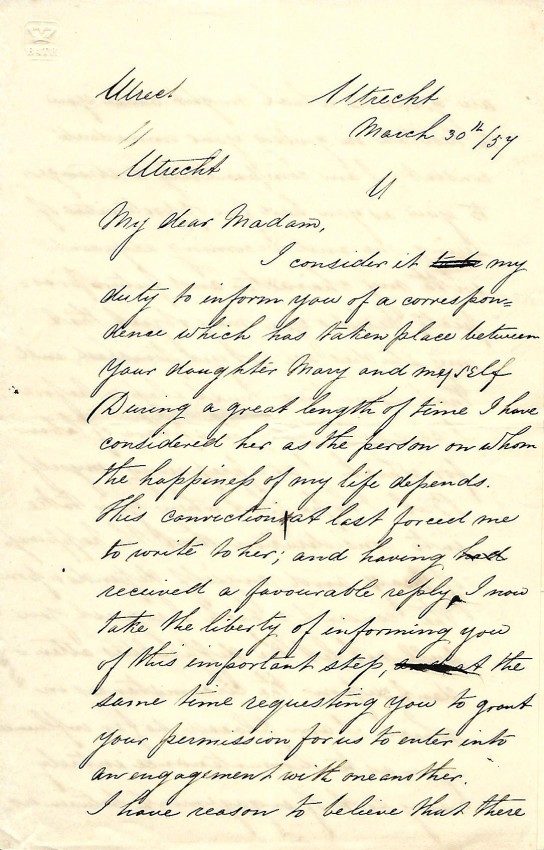 BATH
Utrect Utrecht
March 30th/57
Utrecht
My dear Madam,
I consider it my
duty to inform you of a correspon=
dence which has taken place between
your daughter Mary and myself
During a great length of time I have
considered her as the person on whom
the happiness of my life depends.
This conviction at last forced me
to write to her; and having had
received a favourable reply, I now
take the liberty of informing you
of this important step, the
same time requesting you to grant
your permission for us to enter into
an engagement with one another.
I have reason to believe that there